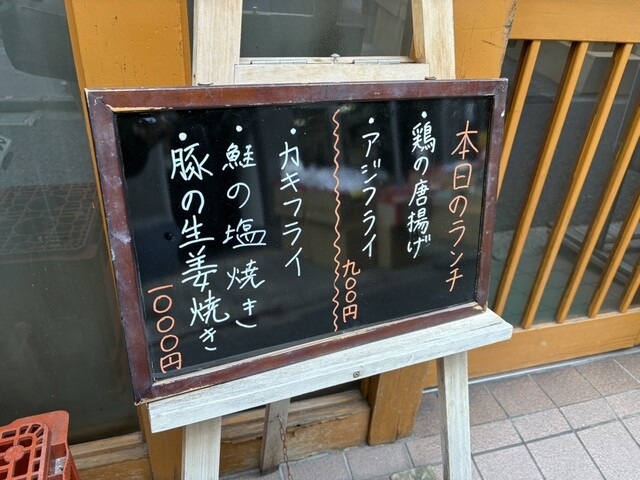 本日のランチ
・鶏の唐揚げ
・アジフライ
九〇〇円
・カキフライ
・鮭の塩焼き
・豚の生姜焼き
一〇〇〇円